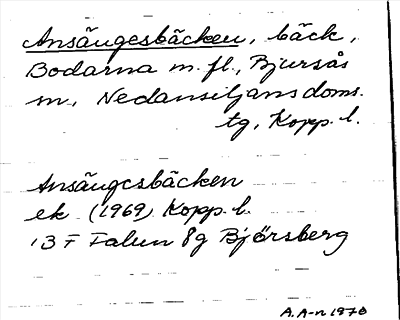 Ansängesbäcken, bäck,
Bodarna m. fl., Bjursås
sn., Nedansiljans doms.
tg, Kopp. l.
Ansängesbäcken
ek (1969) Kopp. l.
13 F Falun 8g Björsberg
A. A-n 1970